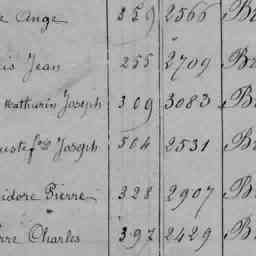 e Ange 259 2566 B
is Jean 255 2709 B
Mathurin Joseph 309 3083 B
Joseph 504 2531 B
idore Pierre 328 2907 B
rre Charles 392 2429 B